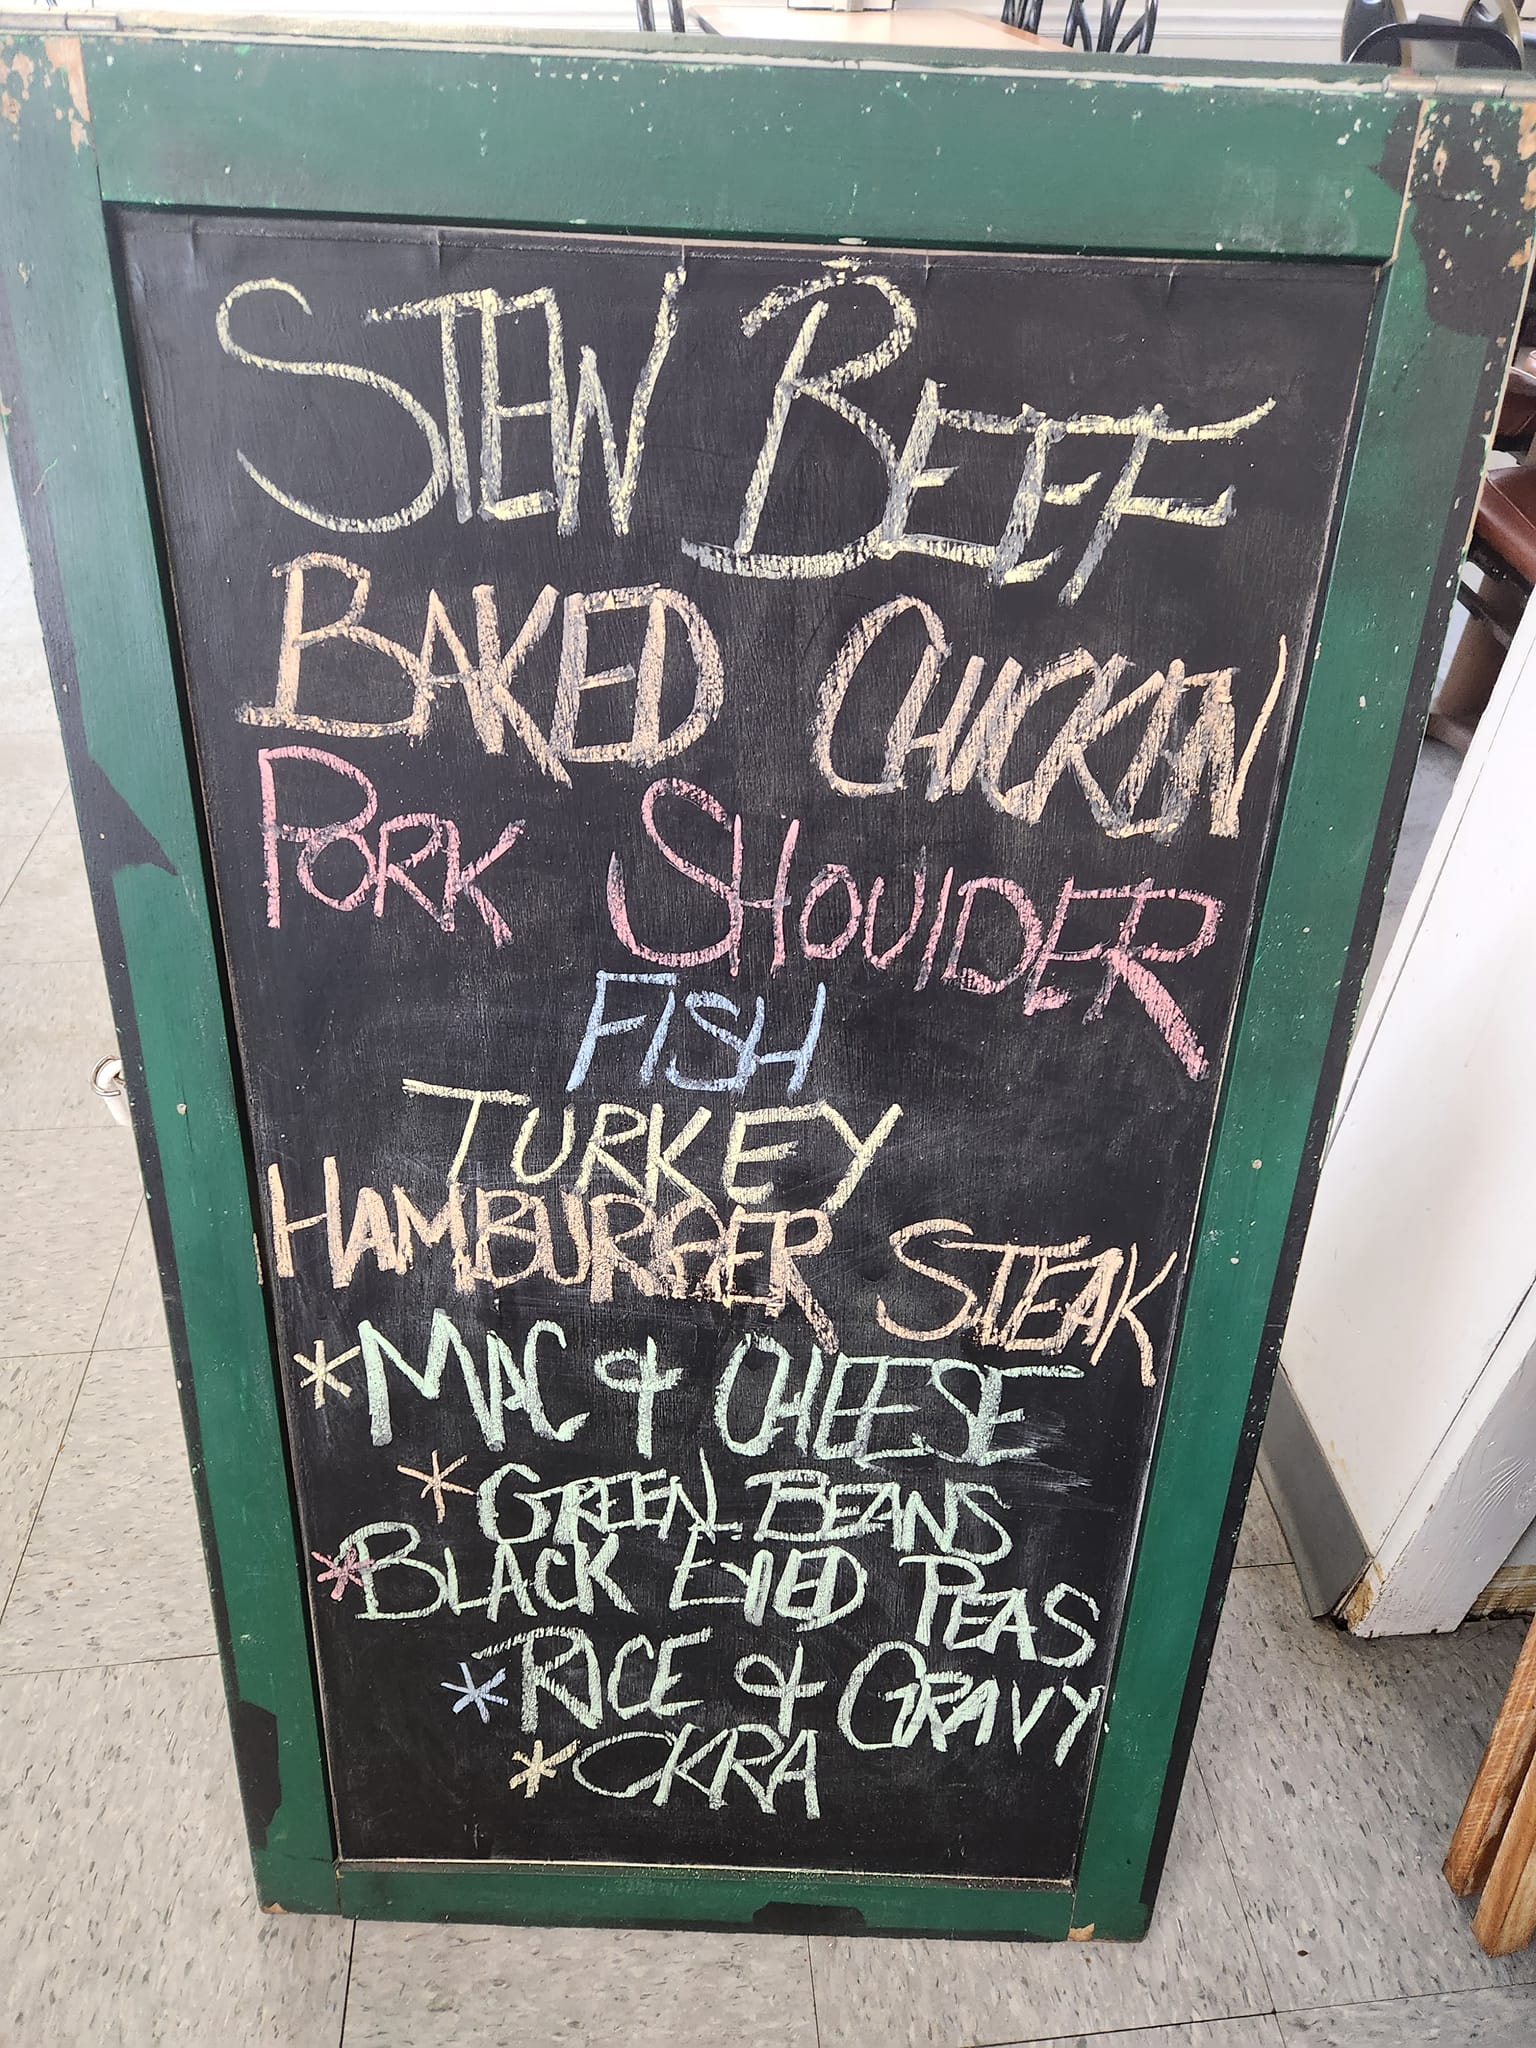 STEW BEEF
BAKED CHICKEN
PORK SHOULDER
FISH
TURKEY
HAMBURGER STEAK
* MAC & CHEESE
* GREEN BEANS
* BLACK EYED PEAS
* RICE & GRAVY
* OKRA